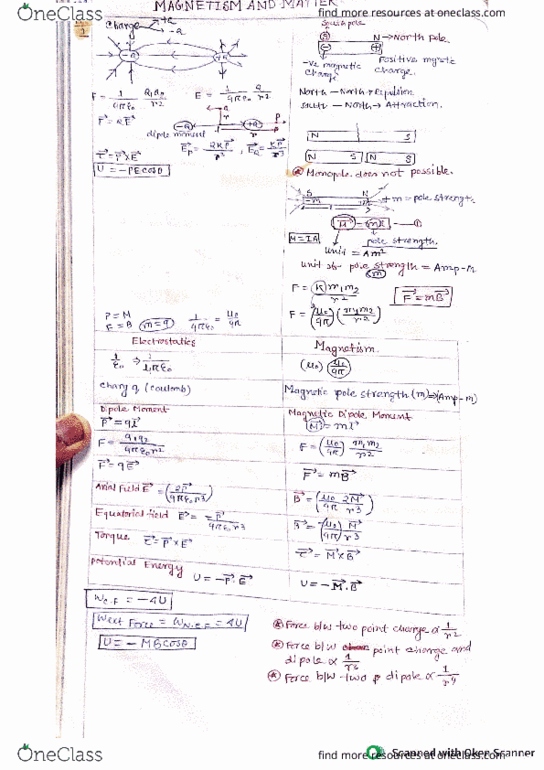 OneClass
find more resources at oneclass.com
MAGNETISM AND MATTER
Charge → +Q
→ -Q
-Q +Q
F = 1/4πε₀ Q₁Q₂/r²
E = 1/4πε₀ Q/r²
dipole moment
-Q +Q
τ⃗ = P⃗ × E⃗
U = -PE cosθ
S N → North pole
-ve magnetic charge
Positive mgntc charge.
North – North → Repulsion
South – North → Attraction.
N S
N S N S
Monopole does not possible.
S N
-m +m → pole strength
M = IA
pole strength
unit = Am²
unit of pole strength = Amp-m
F = K m₁m₂/r²
F⃗ = mB⃗
F = (μ₀/4π)(m₁m₂/r²)
P = M
E = B m = q 1/4πε₀ = μ₀/4π
Electrostatics Magnetism
1/ε₀ → 1/4πε₀ (μ₀) μ₀/4π
Charg q (Coulomb) Magnetic pole strength (m) → (Amp-m)
Dipole Moment Magnetic Dipole Moment
P⃗ = ql⃗ M⃗ = ml⃗
F = q₁q₂/4πε₀r² F = (μ₀/4π) m₁m₂/r²
F⃗ = qE⃗ F⃗ = mB⃗
Axial Field E⃗ = (2P⃗/4πε₀r³) B⃗ = (μ₀/4π 2M⃗/r³)
Equatorial field E⃗ = -P⃗/4πε₀r³ B⃗ = -(μ₀/4π) M⃗/r³
Torque τ⃗ = P⃗ × E⃗ τ⃗ = M⃗ × B⃗
Potential Energy U = -P⃗.E⃗ U = -M⃗.B⃗
Wc.F = -ΔU
Wext Force = WN.C.F = ΔU
U = -MB cosθ
Force b/w two point charge α 1/r²
Force b/w point charge and
dipole α
Force b/w two dipole α 1/r⁴
OneClass
find more resources at oneclass.com
Scanned with Oken Scanner